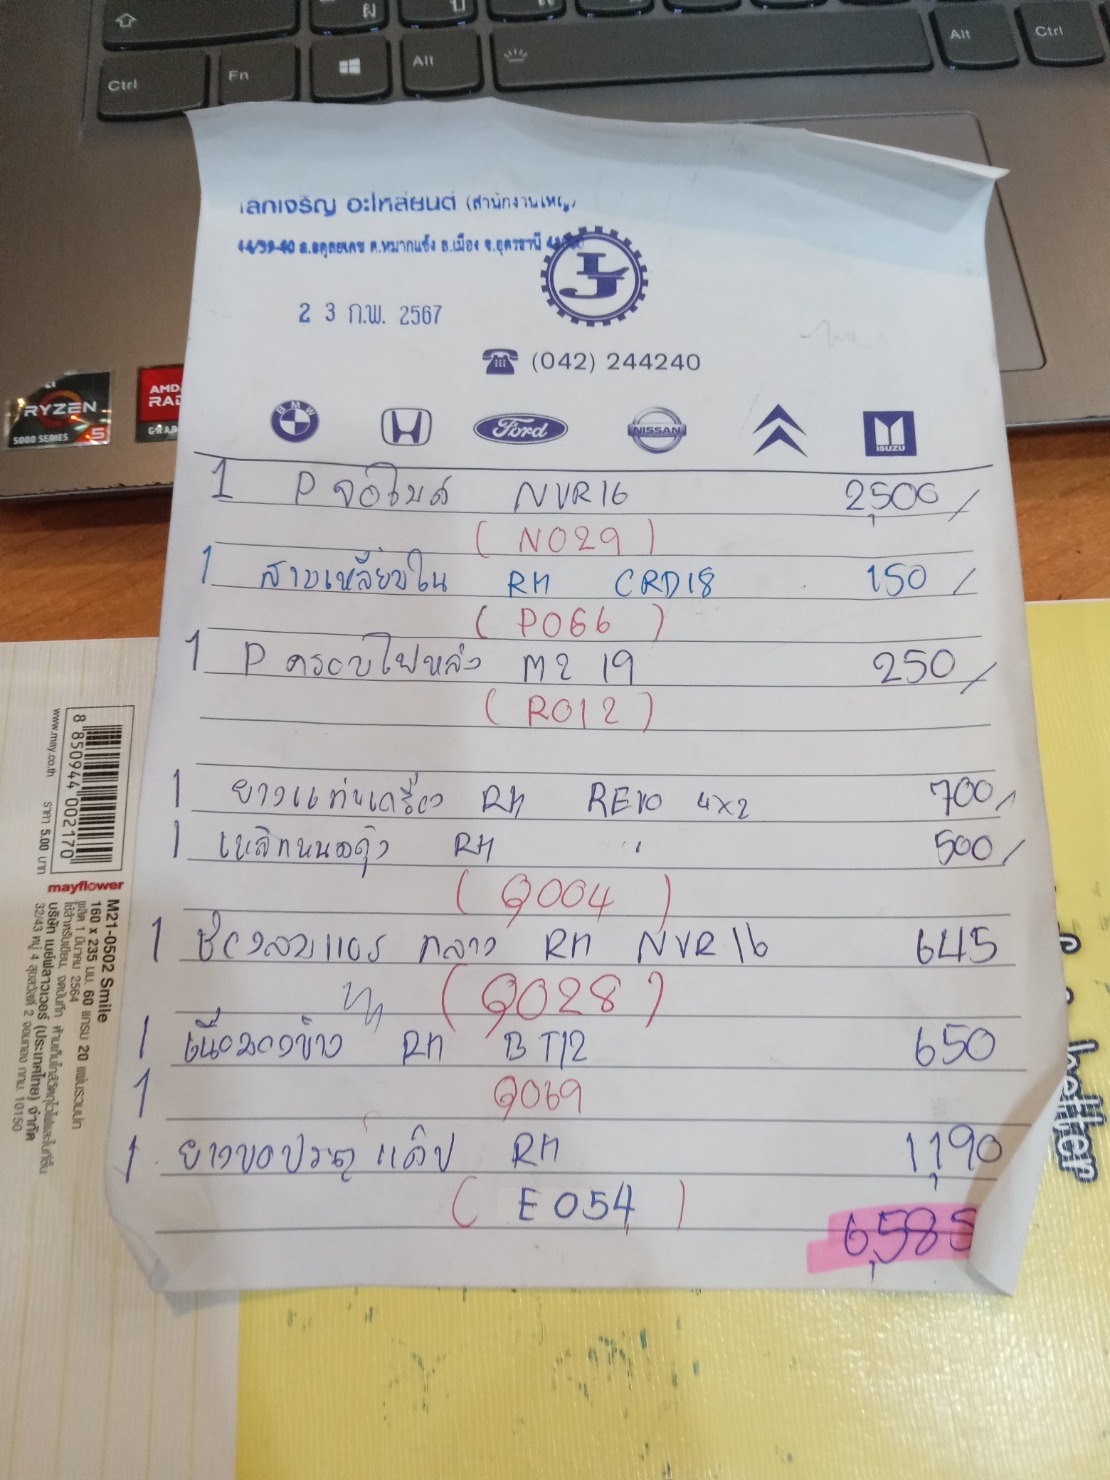 Ctrl
Fn
Alt
Alt
Ctrl
เลกเจริญ อะไหล่ยนต์ (สำนักงานใหญ่)
ต.หมากแข้ง อ.เมือง จ.อุดรธานี
LJ
2 3 ก.พ. 2567
(042) 244240
BMW
Ford
NISSAN
ISUZU
RYZEN
5000 SERIES 5
AMD
1 P จอไมล์ NVR16 2,500/
( N029 )
1 สายเหลี่ยมใน RH CRD18 150/
( P066 )
1 P ครอบไฟหลัง M2 19 250/
( R012 )
1 ยางแท่นเครื่อง RH REVO 4x2 700/
1 เหล็กหนวดกุ้ง RH " 500/
( Q004 )
1 ช่องลมแอร์ กลาง RH NVR16 645
( Q028 )
1 เนื้อมองข้าง RH BT12 650
1 Q069
1 ยางขอบประตูแค็ป RH 1,190
( E054 )
6,585
8 850944 002170
www.may.co.th ราคา 5.00 บาท
mayflower
M21-0502 Smile
160 x 235 มม. 60 แกรม 20 แผ่น
ผลิต 1 มีนาคม 2564
บริษัท เมย์ฟลาวเวอร์ (ประเทศไทย) จำกัด
32/43 หมู่ 4 สุขสวัสดิ์ 2 จอมทอง กทม. 10150
better